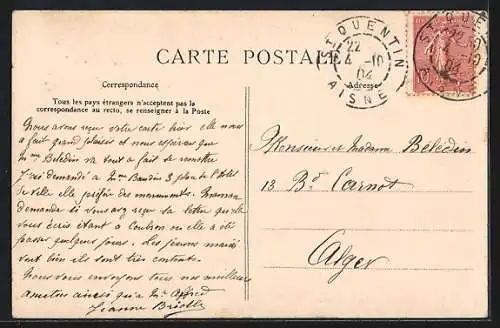 CARTE POSTALE
ST QUENTIN
22
4 -10
04
AISNE
Correspondance
Adresse
Tous les pays étrangers n'acceptent pas la
correspondance au recto, se renseigner à la Poste
Nous avons reçu votre carte hier elle nous
a fait grand plaisir et nous espérons que
Mme Belédin va tout à fait se remettre
J'ai demandé à Mr Baudin 3 place de l'Hôtel
de Ville elle préfère des monuments. Maman
demande si vous avez reçu sa lettre qu'elle
vous écris étant à où elle a été
passer quelques jours. Les jeunes mariés
vont bien ils sont très contents.
Nous vous envoyons tous nos meilleurs
ainsi qu'à Mr Alfred
Jeanne
Monsieur et Madame Belédin
13 Bd Carnot
Alger